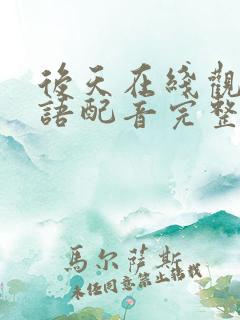 後天在綫觀
語配音完整
馬尔薩斯
未经同意禁止转载